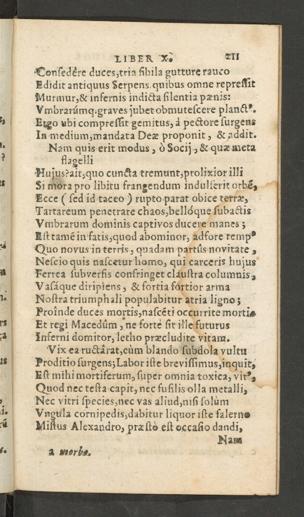 LIBER X. 211
Consedére duces, tria sibila gutture rauco
Edidit antiquus Serpens. quibus omne repressit
Murmur, & infernis indicta silentia pœnis:
Vmbrarúmq. graves jubet obmutescere planctꝰ.
Ergo ubi compressit gemitus, à pectore surgens
In medium, mandata Deæ proponit, & addit.
Nam quis erit modus, ô Socij, & quæ meta
flagelli
Hujus? ait, quo cuncta tremunt, prolixior illi
Si mora pro libitu frangendum indulserit orbē,
Ecce (sed id taceo) rupto parat obice terræ,
Tartareum penetrare chaos, bellóque subactis
Vmbrarum dominis captivos ducere manes;
Est tamē in fatis, quod abominor, adfore tempꝰ
Quo novus in terris, quadam partus novitate,
Nescio quis nascetur homo, qui carceris hujus
Ferrea subversis confringet claustra columnis,
Vasáque diripiens, & fortia fortior arma
Nostra triumphali populabitur atria ligno;
Proinde duces mortis, nascēti occurrite morti a
Et regi Macedûm, ne fortè sit ille futurus
Inferni domitor, letho præcludite vitam.
Vix ea ructârat, cùm blando subdola vultu
Proditio surgens; Labor iste brevissimus, inquit,
Est mihi mortiferum, super omnia toxica, virꝰ,
Quod nec testa capit, nec fusilis olla metalli,
Nec vitri species, nec vas aliud, nisi solùm
Vngula cornipedis, dabitur liquor iste falerno
Mistus Alexandro, præstò est occasio dandi,
Nam
a morbo.